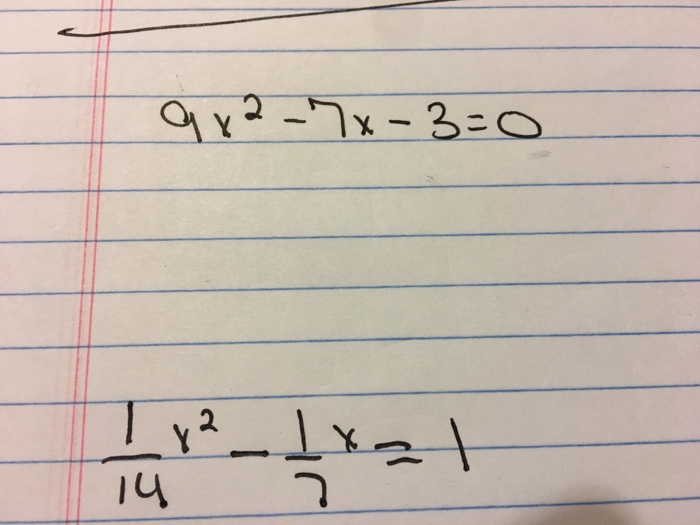 9x² - 7x - 3 = 0
1/14 x² - 1/7 x = 1